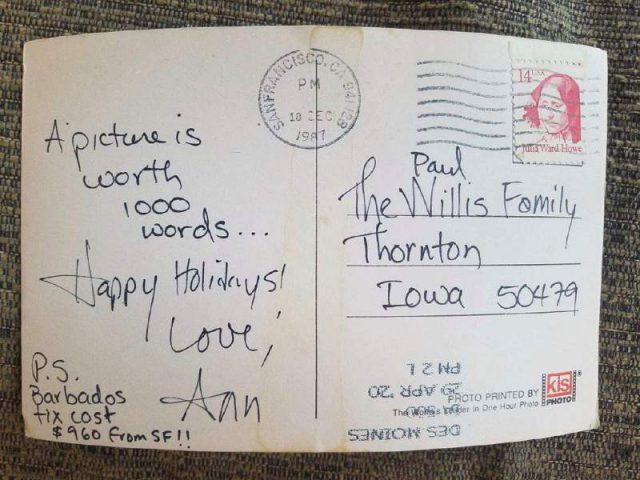 SAN FRANCISCO, CA
PM
18 DEC
1987
14 USA
Julia Ward Howe
A picture is
worth
1000
words...
Happy Holidays!
Love,
Ann
P.S.
Barbados
tix cost
$960 from SF!!
Paul
The Willis Family
Thornton
Iowa 50479
PM 2 L
29 APR 20
DES MOINES
PHOTO PRINTED BY
The World's Leader in One Hour Photo
kis
PHOTO